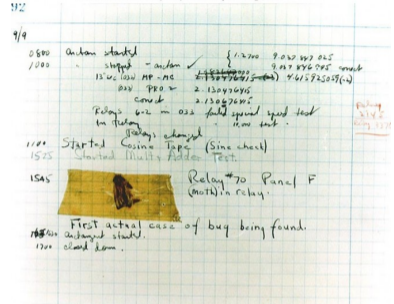 92
9/9
0800 antan started
1000 " stopped - antan ✓ { 1.2700 9.037 847 025
9.037 846 995 correct
13°uc (032) MP - MC 4.615925059(-2)
(033) PRO 2 2.130476415
correct 2.130676415
Relays 6-2 in 033 failed special speed test
in relay " 11.000 test.
Relays changed
1100 Started Cosine Tape (Sine check)
1525 Started Multi Adder Test.
1545 Relay #70 Panel F
(moth) in relay.
First actual case of bug being found.
antangent started.
1700 closed down.